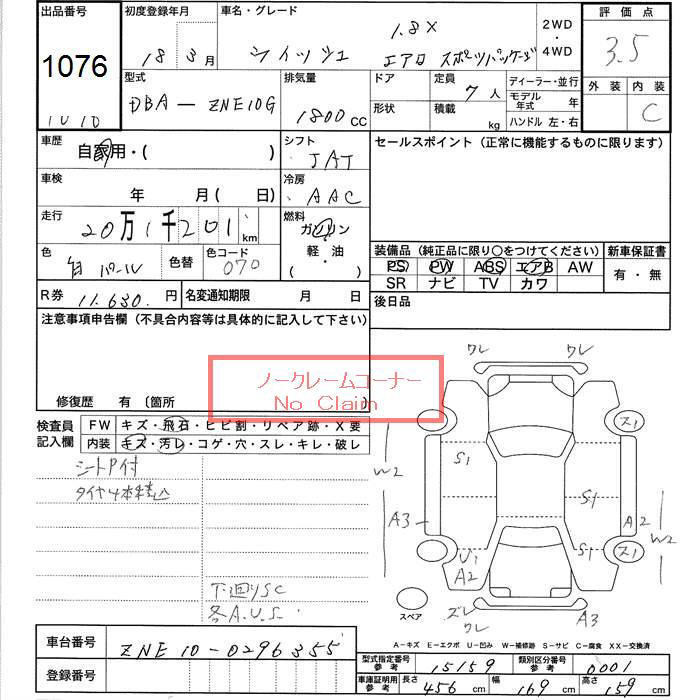 出品番号
1076
1010
初度登録年月
18年 3月
車名・グレード
ウィッシュ
1.8X
エアロ スポーツパッケージ
2WD
・
4WD
評価点
3.5
外装 内装
C
型式
DBA－ZNE10G
排気量
1800 CC
ドア
形状
定員
7人
積載
kg
ディーラー・並行
モデル年式 年
ハンドル 左・右
車歴
自家用・( )
シフト
IAT
車検
年 月( 日)
冷房
AAC
走行
20万1千201 km
燃料
ガソリン
・
軽・油
・
( )
色
白パール
色替
色コード
070
R券
11,630 円
名変通知期限 月 日
セールスポイント (正常に機能するものに限ります)
装備品 (純正品に限り○をつけてください)
PS PW ABS エアB AW
SR ナビ TV カワ
新車保証書
有・無
後日品
注意事項申告欄 (不具合内容等は具体的に記入して下さい)
修復歴 有 〔箇所
ノークレームコーナー
No Claim
検査員記入欄
FW キズ・飛石・ヒビ割・リペア跡・X要
内装 キズ・汚レ・コゲ・穴・スレ・キレ・破レ
シートP付
タイヤ4本積込
下廻りSC
各A.U.S.
ワレ ワレ
ス1
S1
W2
S1
A3
A2
W2
S1
ス1
U1
A2
スペア
ズレ
ワレ
A3
A－キズ E－エクボ U－凹み W－補修跡 S－サビ C－腐食 XX－交換済
車台番号
ZNE10-0296355
登録番号
型式指定番号 参考 15159
類別区分番号 参考 0001
車庫証明用 参考
長さ 456 cm
幅 169 cm
高さ 159 cm